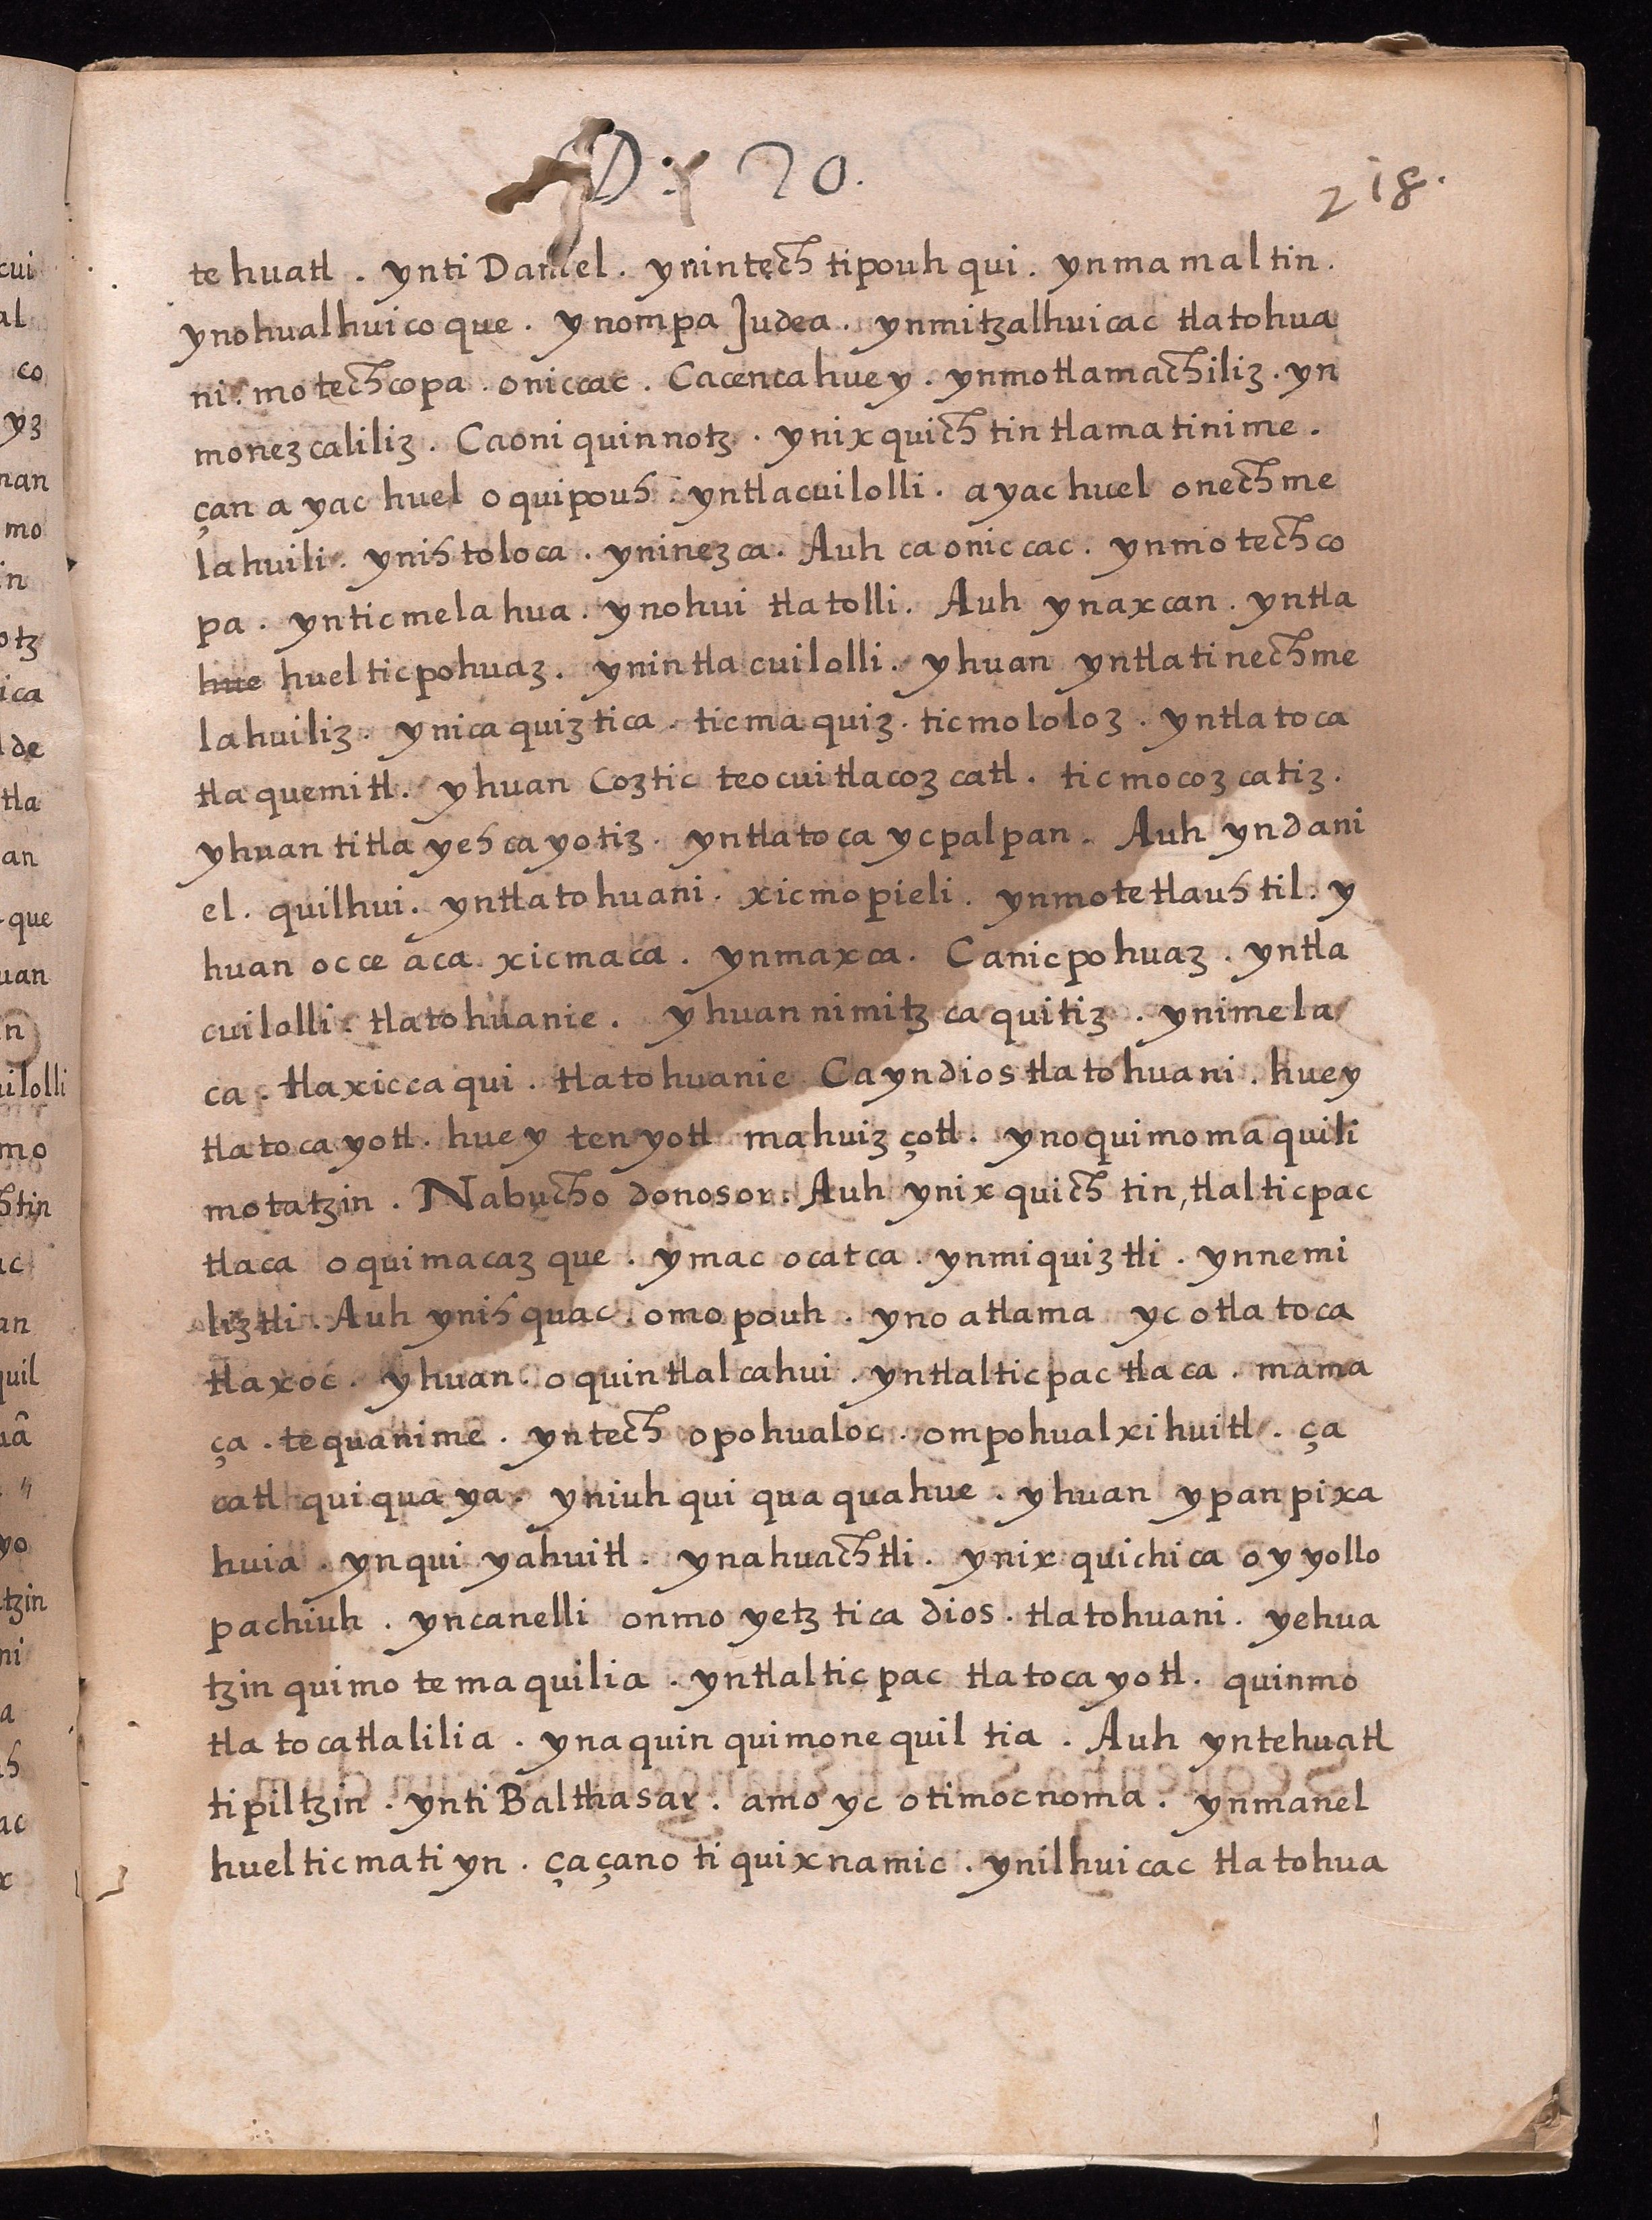 D. Y 20.
218.
tehuatl . ynti Daniel . ynintech tipouh qui . ynmamaltin .
ynohualhuicoque . ynompa Judea . ynmitzalhuicac tlatohua
ni . motechcopa . oniccac . Cacencahuey . ynmotlamachiliz . yn
monezcaliliz . Caoniquinnotz . ynixquichtin tlamatinime .
çan ayac huel oquipouh . yntlacuilolli . ayac huel onechme
lahuili . ynihtoloca . yninezca . Auh caoniccac . ynmotechco
pa . ynticmelahua . ynohui tlatolli . Auh ynaxcan . yntla
hue huelticpohuaz . ynintlacuilolli . yhuan yntlatinechme
lahuiliz . ynicaquiztica . ticmaquiz . ticmololoz . yntlatoca
tlaquemitl . yhuan Coztic teocuitlacozcatl . ticmocozcatiz .
yhuan titlayehcayotiz . yntlatoca ycpalpan . Auh yndani
el . quilhui . yntlatohuani . xicmopieli . ynmotetlauhtil . y
huan occe aca xicmaca . ynmaxca . Canicpohuaz . yntla
cuilolli . tlatohuanie . yhuan nimitzcaquitiz . ynimela
ca . tlaxiccaqui . tlatohuanie Cayndios tlatohuani . huey
tlatocayotl . huey tenyotl mahuizçotl . ynoquimomaquili
motatzin . Nabucho donosor . Auh ynixquichtin, tlalticpac
tlaca oquimacazque . ymac ocatca . ynmiquiztli . ynnemi
liztli . Auh ynihquac . omopouh . ynoatlama yc otlatoca
tlaxoc . yhuan . oquintlalcahui . yntlalticpac tlaca . mama
ça . tequanime . yntech opohualoc . ompohualxihuitl . ça
catl quiquaya . yniuhqui quaquahue . yhuan ypanpixa
huia . ynquiyahuitl . ynahuachtli . ynixquichica oyyollo
pachiuh . yncanelli onmoyetztica dios . tlatohuani . yehua
tzin quimotemaquilia . yntlalticpac tlatocayotl . quinmo
tlatocatlalilia . ynaquin quimonequiltia . Auh yntehuatl
tipiltzin . ynti Balthasar . amo yc otimocnoma . ynmanel
huelticmatiyn . çaçano tiquixnamic . ynilhuicac tlatohua